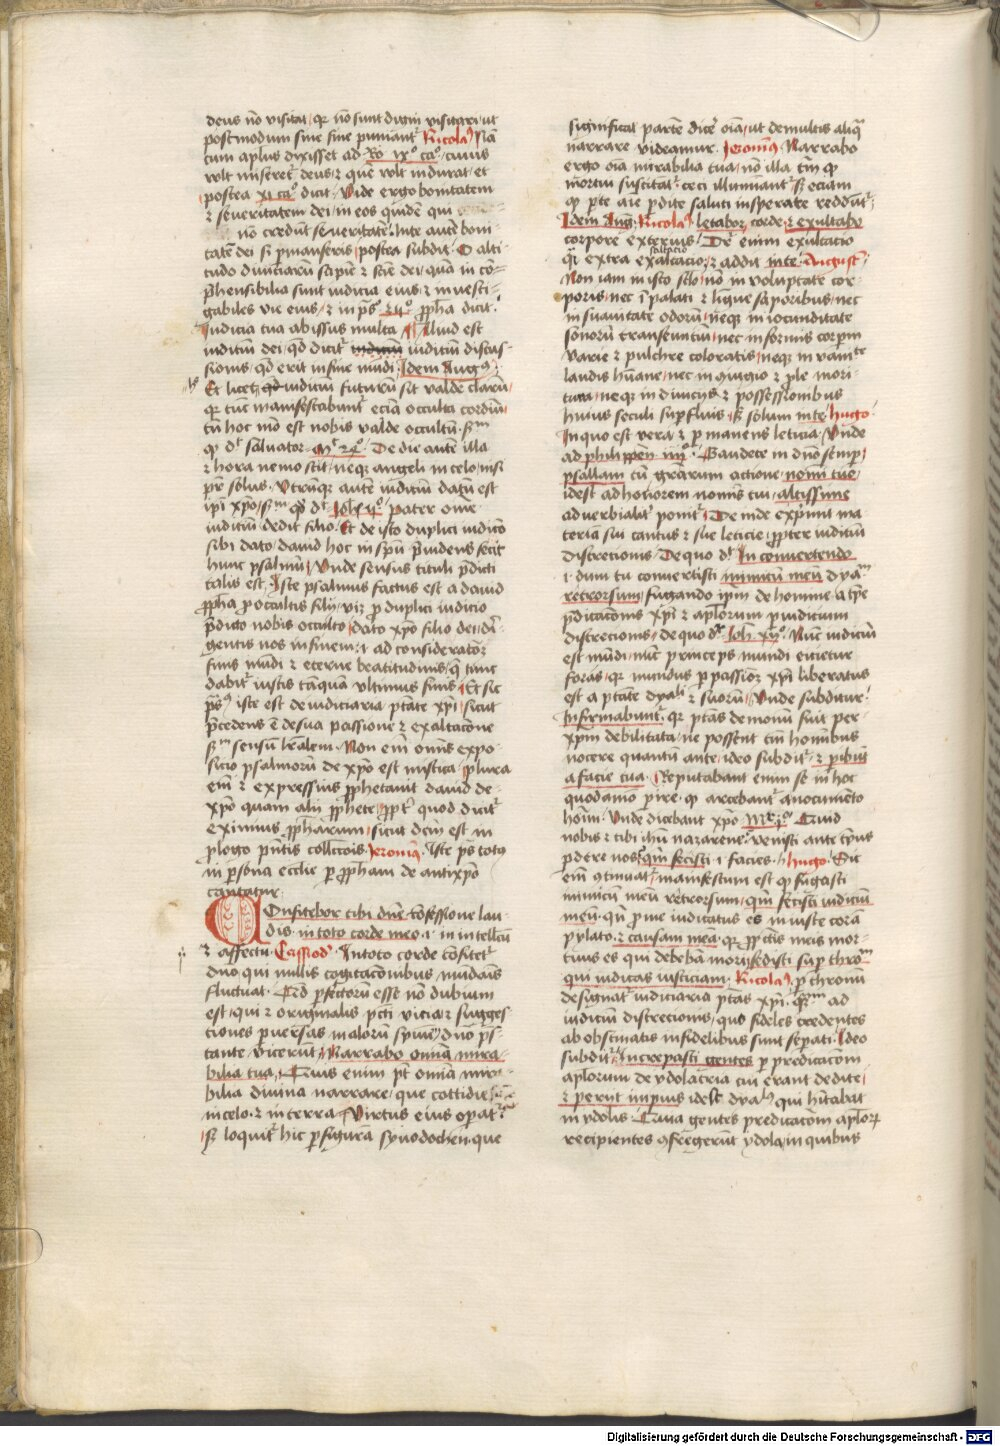 deus nō visitat / qr nō sunt digni visitari / ut
postmodum sine fine puniant᷑ Nicola⁹ Nā
cum aplus dixisset ad Ro ix° ca° / cuius
vult miseret᷑ deus / ⁊ que vult indurat / et
postea xi ca° dicit / Vide ergo bonitatem
⁊ seueritatem dei / in eos quidē qui
nō credūt seueritatē / Inte autē boni
tatē dei si pmanseris / postea subdit / O alti
tudo diuiciarū sapiē ⁊ sciē dei / quā in cō
phensibilia sunt iudicia eius / ⁊ inuesti
gabiles vie eius / ⁊ in ps° ppha dicit /
Iudicia tua abissus multa / Aliud est
iudiciū dei / qd dicit᷑ iudiciū discus
sionis / qd erit in fine mūdi / Idem Aug⁹
Et licet iudiciū futurū sit valde clarū /
qr tūc manifestabunt᷑ eciā occulta cordiū /
tn̄ hoc mō est nobis valde occultū / sm
q dt saluator mr 24° / De die autē illa
⁊ hora nemo scit / neqr angeli in celo / nisi
pr̄ solus / Vtrūqr autē iudiciū datū est
ipi xpo / sm qd dt Joh v° / pater om̄e
iudiciū dedit filio / Et de isto duplici iudicio
sibi dato / dauid hoc in spū puidens fecit
hunc psalmū / Unde sensus tituli pdicti
talis est / Iste psalmus factus est a dauid
ppha p occultis filij / viz p duplici iudicio
pdicto nobis occulto / dato xpo filio dei / di
gentis nos in finem / i ad consideratoȝ
finis mūdi ⁊ eterne beatitudinis / q tunc
dabit᷑ iustis tāquā vltimus finis / Et sic
ps⁹ iste est de iudiciaria ptate xpi / sicut
pcedens ē de sua passione ⁊ exaltacōne
sm sensū lr̄alem / Non em̄ omīs expo
sicio psalmorū de xpo est mistica / plura
em̄ ⁊ expressius pphetauit dauid de
xpo quam alij pphete / ppt᷑ quod dicit᷑
eximius ppharum / sicut dcm̄ est in
plogo pntis collcōis / Jeronim⁹ / Iste ps tot⁹
in psona ecclie p ppham de antixpo
cantatur
Confitebor tibi dn̄e cōfessione lau
dis / in toto corde meo / i in intellcū
⁊ affectu / Cassiod᷑ / In toto corde cōfitet᷑
dn̄o qui nullis cogitacōnibus mūdais
fluctuat / Sed pfectorū esse nō dubium
est / qui ⁊ originalis pcti vicia ⁊ sugges
tiones puersas malorū spiritū dn̄o ps
tante vicerūt / Narrabo omīa mira
bilia tua / Quis enim pt omīa mira
bilia diuina narrare / que cottidie
in celo ⁊ in terra virtus eius opat᷑
sȝ loquit᷑ hic p figurā synodochen / que
significat partē dicē oīa / ut de multis aliq
narrare videamur / Jeronim⁹ / Narrabo
ergo oīa mirabilia tua / nō illa tm̄ q
mortui suscitāt᷑ / ceci illumināt᷑ sȝ eciam
q pte aīe pdite saluti insperate reddūt᷑
Idem Aug Nicola⁹ / letabor corde ⁊ exultabo
corpore exterius / Dr̄ enim exultacio
qr extra exaltacio / ⁊ addit inte / August⁹
Non iam in isto sclo / nō in voluptate cor
poris / nec ī palati ⁊ ligue saporibus / nec
in suauitate odorū / neqr in iocunditate
sonorū transeuntiū / nec in formis corpm
varie ⁊ pulchre coloratis / neqr in vanite
laudis hūane / nec in quiugio ⁊ ple mori
tura / neqr in diuicijs ⁊ possessionibus
huius seculi supfluis / sȝ solum inte / Hugo
In quo est vera ⁊ pmanens leticia / Unde
ad philippen iiij° / Gaudete in dn̄o semp /
psallam cū gr̄arum actione / nomi tuo /
idest ad honorem nomīs tui / altissime
aduerbialit᷑ ponit᷑ / Deinde exprimit ma
teriā sui cantus ⁊ sue leticie / ppter iudiciū
discretionis / De quo dt / In conuertendo
i dum tu conuertisti inimicū meū dyabm
retrorsum / fugando ipm de homine a tpe
pdicacōnis xpi ⁊ aplorum p iudicium
discretionis / de quo dt Joh xij° / Nūc iudiciū
est mūdi / nūc princeps mundi eicietur
foras / qr mundus p passioȝ xpi liberatus
est a ptate dyali ⁊ suorū / Unde subditur /
Infirmabunt᷑ / qr ptas demonū fuit per
xpm debilitata / ne possent tm̄ homībus
nocere quantū ante / ideo subdit᷑ / ⁊ pibūt
a facie tua / Reputabant enim se in hoc
quodāmo pire / q arcebant᷑ a nocumēto
hoīm / Unde dicebant xpo Mr i° / Quid
nobis ⁊ tibi ihū nazarene / venisti ante tps
pdere nos / qm fecisti / i facies / Hugo / Sic
em̄ qtinuat᷑ / manifestum est q fugasti
inimicū meū retrorsum / qm fecisti iudiciū
meū / qn pme iudicatus es iniuste corā
pylato / ⁊ causam meā / qr p pctis meis mor
tuus es qui debebā mori / sedisti sup throm
qui iudicas iusticiam / Nicola⁹ / p thronū
designat᷑ iudiciaria ptas xpi / qr ad
iudiciū discretionis / quo fideles credentes
ab obstinatis infidelibus sunt sepati / Ideo
subdit᷑ / Increpasti gentes p predicatoēm
aplorum de ydolatria cui erant dedite /
⁊ periit impius / idest dyabl⁹ qui hītabat
in ydolis / Quia gentes predicatoēm aplorū
recipientes qfregerūt ydola / in quibus
Digitalisierung gefördert durch die Deutsche Forschungsgemeinschaft - DFG